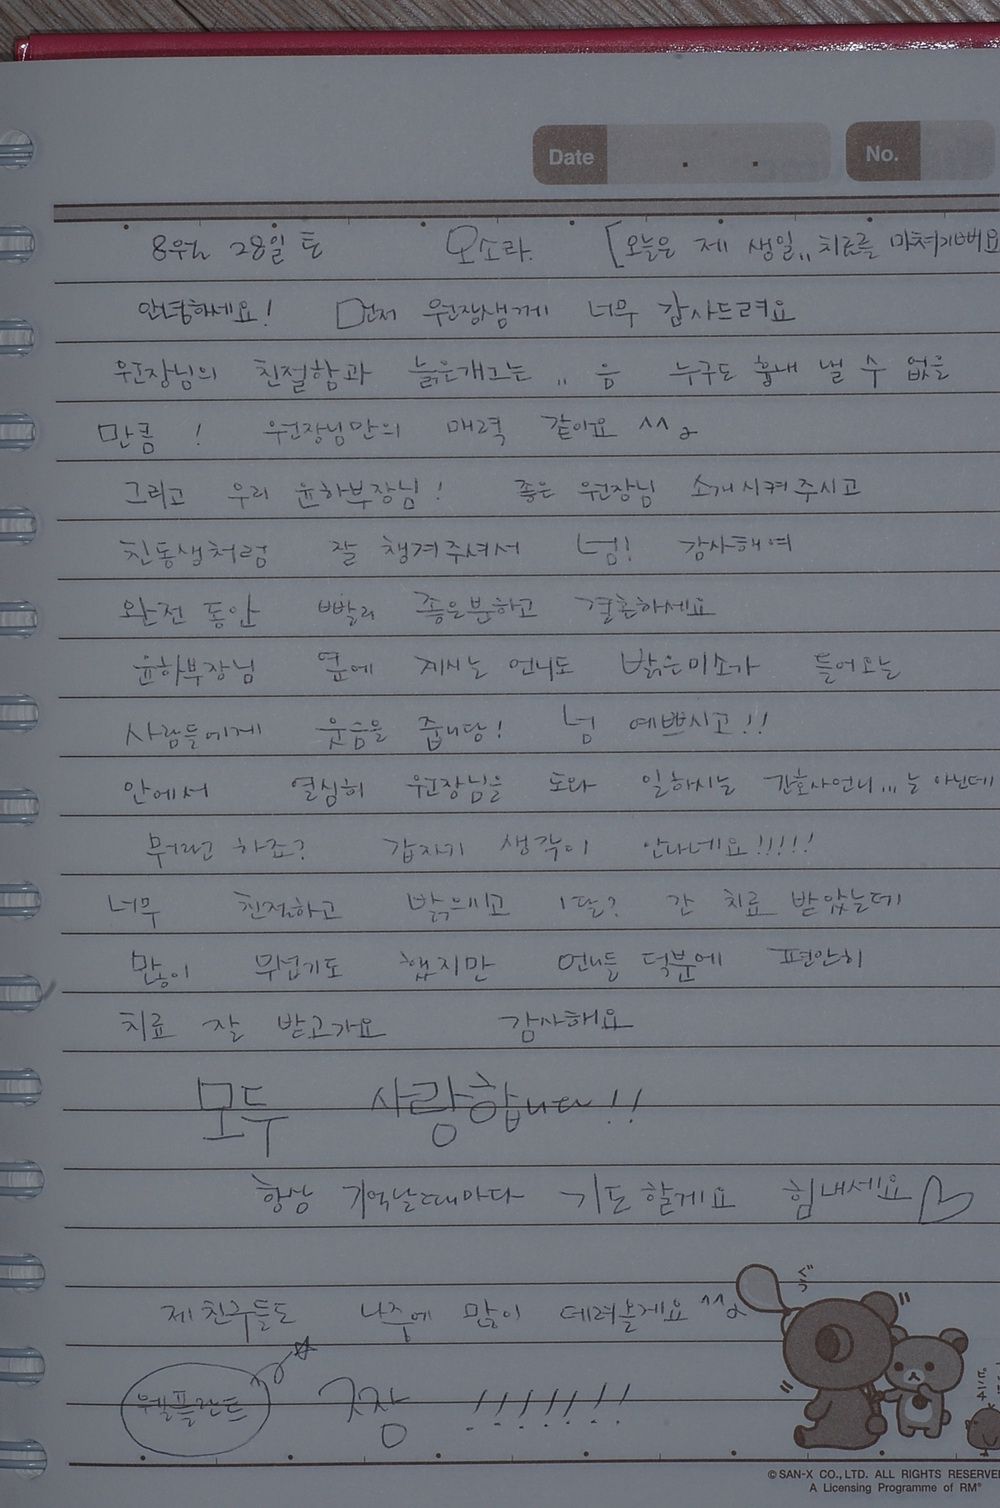 Date . . No.
8월 28일 토 오소라. [오늘은 제 생일,, 치료를 마쳐기뻐요
안녕하세요! 먼저 원장쌤께 너무 감사드려요
원장님의 친절함과 늙은개그는 ,, 음 누구도 흉내 낼 수 없을
만큼 ! 원장님만의 매력 같아요 ^^
그리고 우리 윤하부장님! 좋은 원장님 소개시켜주시고
친동생처럼 잘 챙겨주셔서 넘! 감사해여
완전 동안 빨리 좋은분하고 결혼하세요
윤하부장님 옆에 계시는 언니도 밝은미소가 들어오는
사람들에게 웃음을 줍니당! 넘 예쁘시고!!
안에서 열심히 원장님을 도와 일하시는 간호사언니,,,는 아닌데
뭐라고 하죠? 갑자기 생각이 안나네요!!!!!
너무 친절하고 밝으시고 1달? 간 치료 받았는데
많이 무섭기도 했지만 언니들 덕분에 편안히
치료 잘 받고가요 감사해요
모두 사랑합니다!!
항상 기억날때마다 기도할게요 힘내세요
제친구들도 나중에 많이 데려올게요 ^^
웰플란트 굿짱 !!!!!!!
© SAN-X CO., LTD. ALL RIGHTS RESERVE
A Licensing Programme of RM®